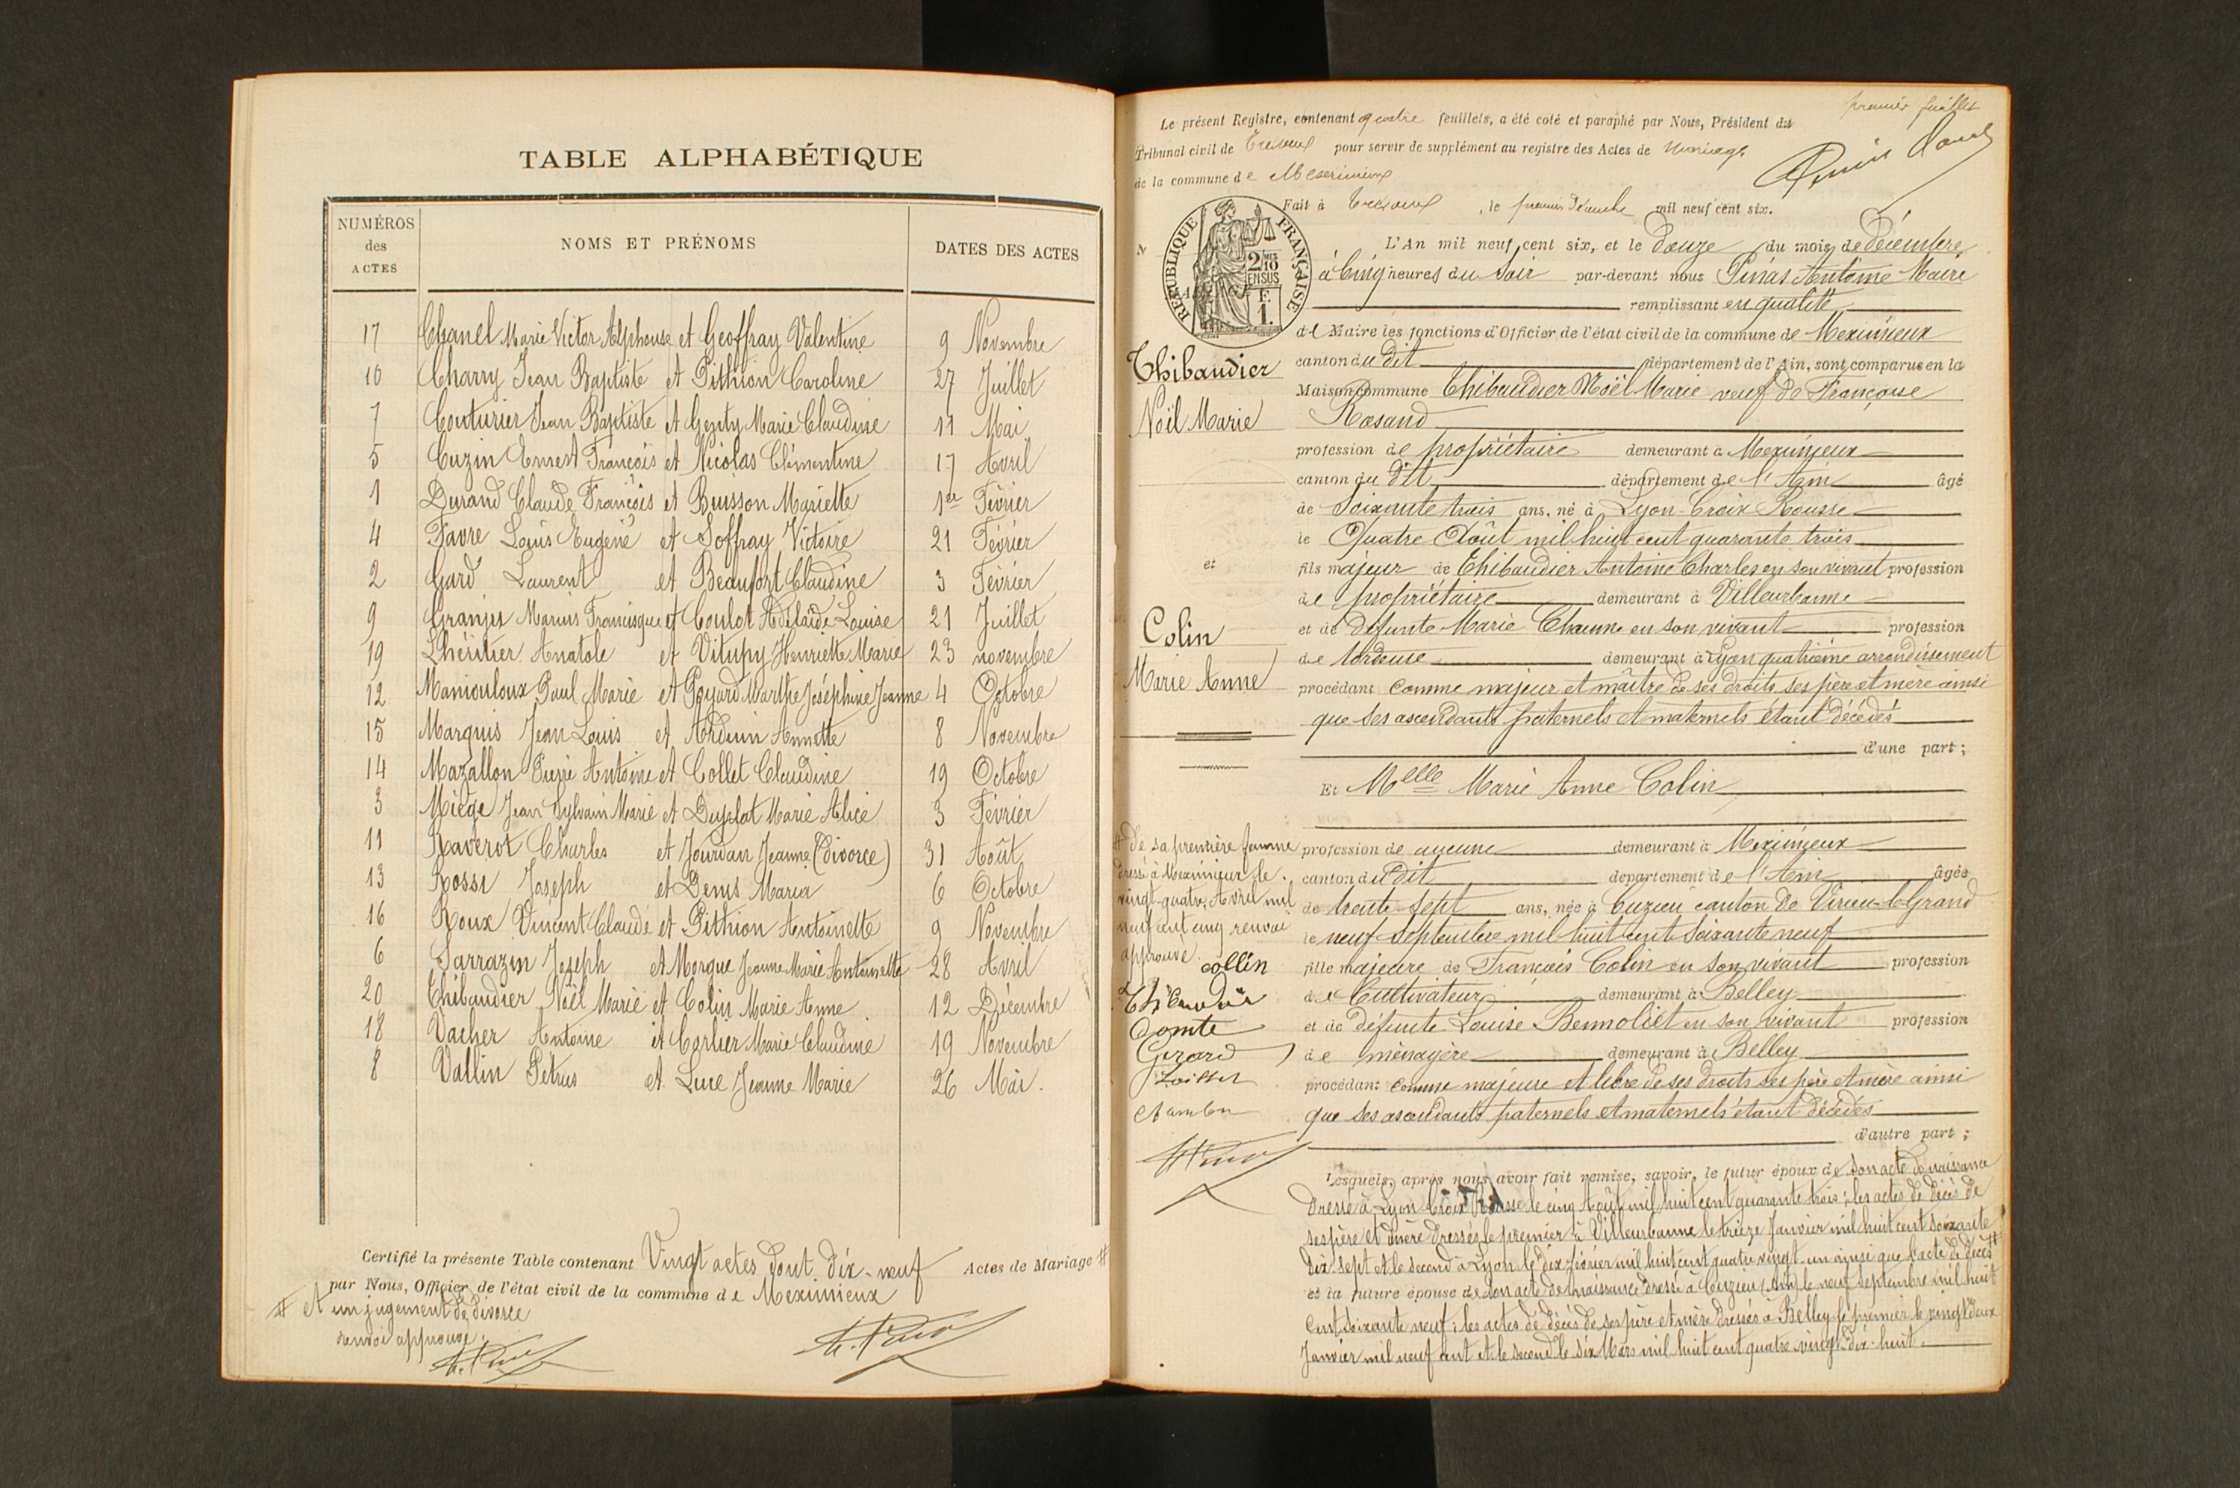 TABLE ALPHABÉTIQUE
NUMÉROS des ACTES NOMS ET PRÉNOMS DATES DES ACTES
17 Chanel Marie Victor Alphonse et Geoffray Valentine 9 Novembre
10 Charry Jean Baptiste et Pithion Caroline 27 Juillet
7 Couturier Jean Baptiste et Genty Marie Claudine 11 Mai
5 Cuzin Ernest François et Nicolas Clémentine 17 Avril
1 Durand Claude François et Buisson Mariette 1er Février
4 Favre Louis Eugène et Soffray Victoire 21 Février
2 Gard Laurent et Beaufort Claudine 3 Février
9 Granjis Marius Francisque et Coulot Adélaïde Louise 21 Juillet
19 Lhéritier Anatole et Vitupy Henriette Marie 23 novembre
12 Maniouloux Paul Marie et Goyard Marthe Joséphine Jeanne 4 Octobre
15 Marquis Jean Louis et Arduin Annette 8 Novembre
14 Mazallon Antoine et Collet Claudine 19 Octobre
3 Miège Jean Sylvain Marie et Duplat Marie Alice 3 Février
11 Raverot Charles et Jourdan Jeanne (divorce) 31 Août
13 Rossi Joseph et Denis Maria 6 Octobre
16 Roux Vincent Claude et Pithion Antoinette 9 Novembre
6 Sarrazin Joseph et Morgue Jeanne Marie Antoinette 28 Avril
20 Thibaudier Noël Marie et Colin Marie Anne 12 Décembre
18 Vacher Antoine et Carlier Marie Claudine 19 Novembre
8 Vallin Petrus et Luce Jeanne Marie 26 Mai.
Certifié la présente Table contenant Vingt actes dont dix-neuf Actes de Mariage #
par Nous, Officier de l'état civil de la commune de Meximieux
# et un jugement de divorce
renvoi approuvé.
premier feuillet
Le présent Registre, contenant quatre feuillets, a été coté et paraphé par Nous, Président du
Tribunal civil de Trévoux pour servir de supplément au registre des Actes de Mariage
de la commune de Meximieux
Fait à Trévoux, le premier Décembre mil neuf cent six.
RÉPUBLIQUE FRANÇAISE
2/10 EN SUS
1 F.
N
L'An mil neuf cent six, et le douze du mois de décembre
à cinq heures du soir par-devant nous Pinas Antoine Maire
remplissant en qualité
de Maire les fonctions d'Officier de l'état civil de la commune de Meximieux
canton du dit département de l'Ain, sont comparus en la
Thibaudier
Maison commune Thibaudier Noël Marie veuf de Françoise
Noël Marie
Rosand
profession de propriétaire demeurant à Meximieux
canton du dit département de l'Ain âgé
de Soixante trois ans, né à Lyon-Croix Rousse
le Quatre Août mil huit cent quarante trois
et
fils majeur de Thibaudier Antoine Charles en son vivant profession
de propriétaire demeurant à Villeurbanne
Colin
et de défunte Marie Chaume en son vivant profession
de tordeuse demeurant à Lyon quatrième arrondissement
Marie Anne
procédant comme majeur et maître de ses droits ses père et mère ainsi
que ses ascendants paternels et maternels étant décédés
d'une part;
Et Melle Marie Anne Colin
profession de aucune demeurant à Meximieux
canton du dit département de l'Ain âgée
de trente-sept ans, née à Cuzieu canton de Virieu-le-Grand
le neuf Septembre mil huit cent soixante neuf
fille majeure de François Colin en son vivant profession
de Cultivateur demeurant à Belley
et de défunte Louise Bennoliet en son vivant profession
de ménagère demeurant à Belley
procédant comme majeure et libre de ses droits ses père et mère ainsi
que ses ascendants paternels et maternels étant décédés
d'autre part;
# de sa première femme
dressé à Meximieux le
vingt-quatre Avril mil
neuf cent cinq renvoi
approuvé.
Collin
Thibaudier
Comte
Girard
Loisset
Chambu
Lesquels, après nous avoir fait remise, savoir, le futur époux de son acte de naissance
dressé à Lyon Croix Rousse le cinq Août mil huit cent quarante trois; les actes de décès de
ses père et mère dressés le premier à Villeurbanne le treize Janvier mil huit cent soixante
dix-sept et le second à Lyon le dix février mil huit cent quatre-vingt-un ainsi que l'acte de décès #
et la future épouse de son acte de naissance dressé à Cuzieu (Ain) le neuf Septembre mil huit
cent soixante neuf; les actes de décès de ses père et mère dressés à Belley le premier le vingt deux
Janvier mil neuf cent et le second le six Mars mil huit cent quatre vingt-dix-huit